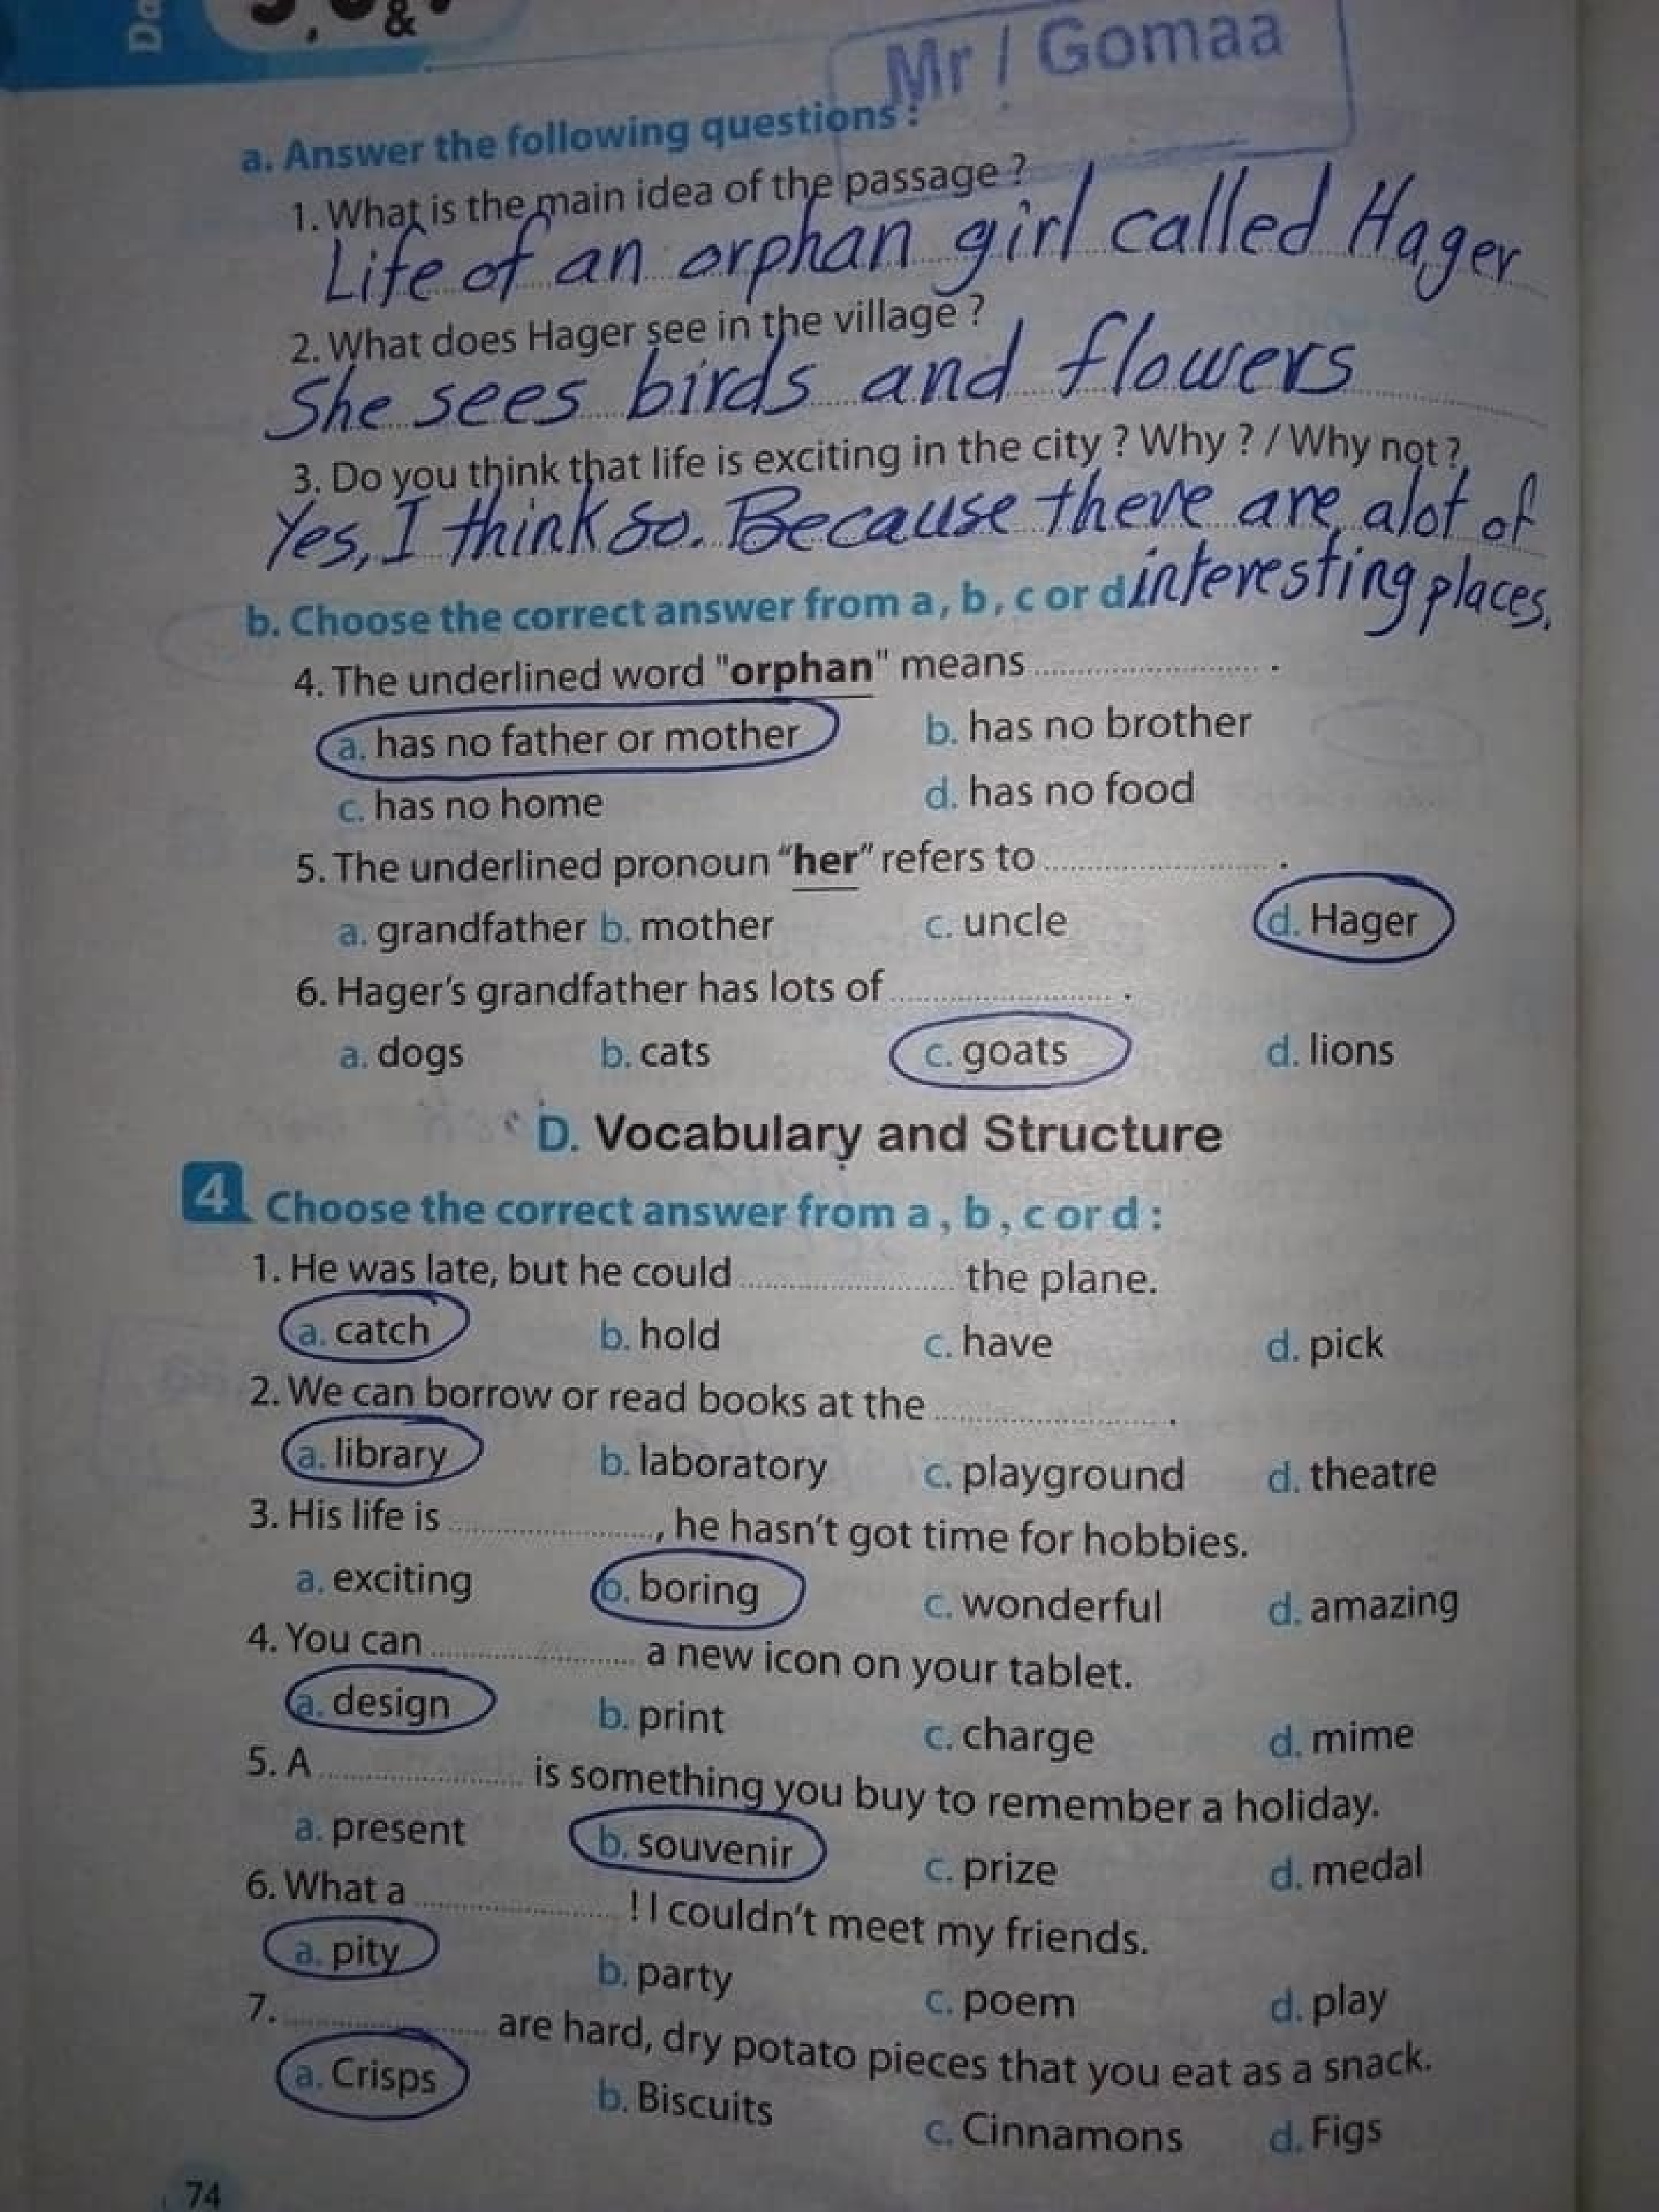 &
Mr / Gomaa
a. Answer the following questions :
1. What is the main idea of the passage ?
Life of an orphan girl called Hager
2. What does Hager see in the village ?
She sees birds and flowers
3. Do you think that life is exciting in the city ? Why ? / Why not ?
Yes, I think so. Because there are alot of
interesting places.
b. Choose the correct answer from a , b , c or d
4. The underlined word "orphan" means .......................... .
a. has no father or mother b. has no brother
c. has no home d. has no food
5. The underlined pronoun “her” refers to .......................... .
a. grandfather b. mother c. uncle d. Hager
6. Hager’s grandfather has lots of .......................... .
a. dogs b. cats c. goats d. lions
D. Vocabulary and Structure
4 Choose the correct answer from a , b , c or d :
1. He was late, but he could .......................... the plane.
a. catch b. hold c. have d. pick
2. We can borrow or read books at the .......................... .
a. library b. laboratory c. playground d. theatre
3. His life is .........................., he hasn’t got time for hobbies.
a. exciting b. boring c. wonderful d. amazing
4. You can .......................... a new icon on your tablet.
a. design b. print c. charge d. mime
5. A .......................... is something you buy to remember a holiday.
a. present b. souvenir c. prize d. medal
6. What a .......................... ! I couldn’t meet my friends.
a. pity b. party c. poem d. play
7. .......................... are hard, dry potato pieces that you eat as a snack.
a. Crisps b. Biscuits c. Cinnamons d. Figs
74